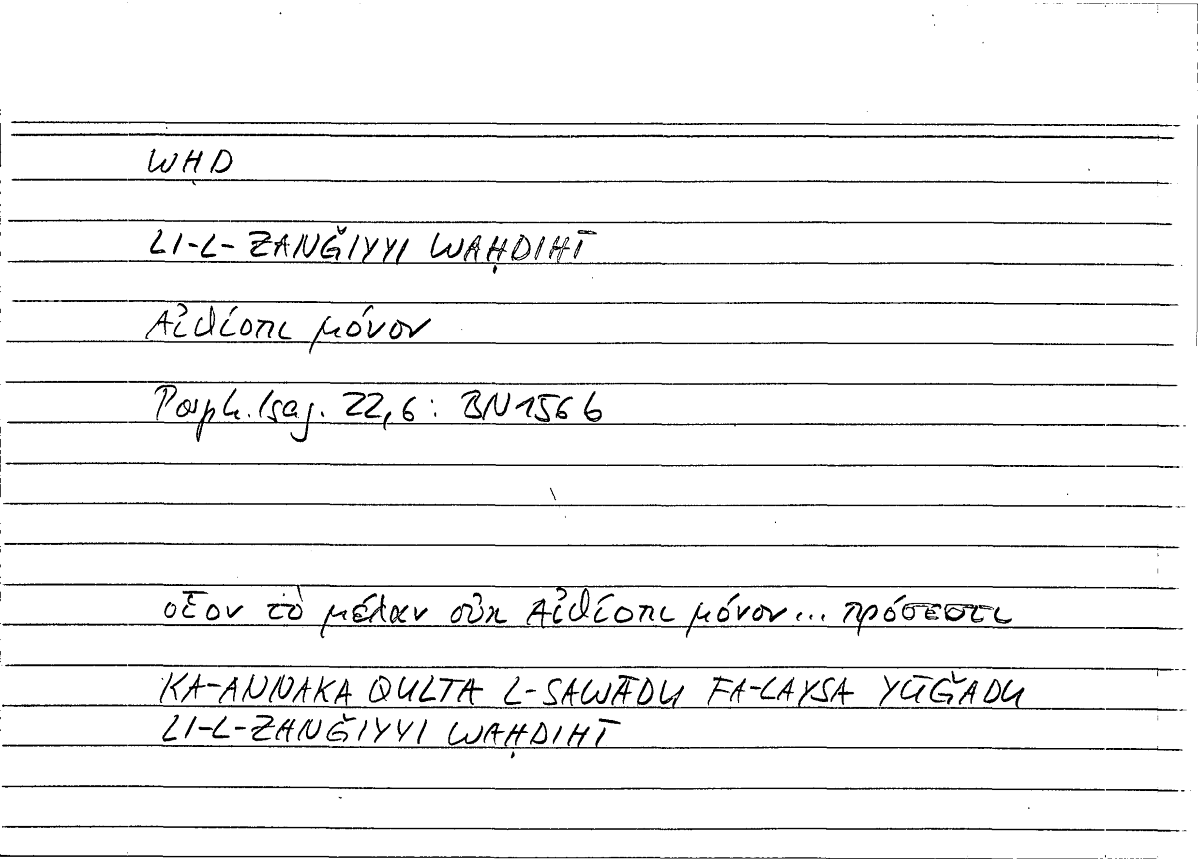 WḤD
LI-L-ZANǦIYYI WAḤDIHĪ
Αἰθίοπι μόνον
Porph. Isag. 22,6: BN 156 b
οἷον τὸ μέλαν οὐκ Αἰθίοπι μόνον... πρόσεστι
KA-ANNAKA QULTA L-SAWĀDU FA-LAYSA YŪǦADU
LI-L-ZANǦIYYI WAḤDIHĪ